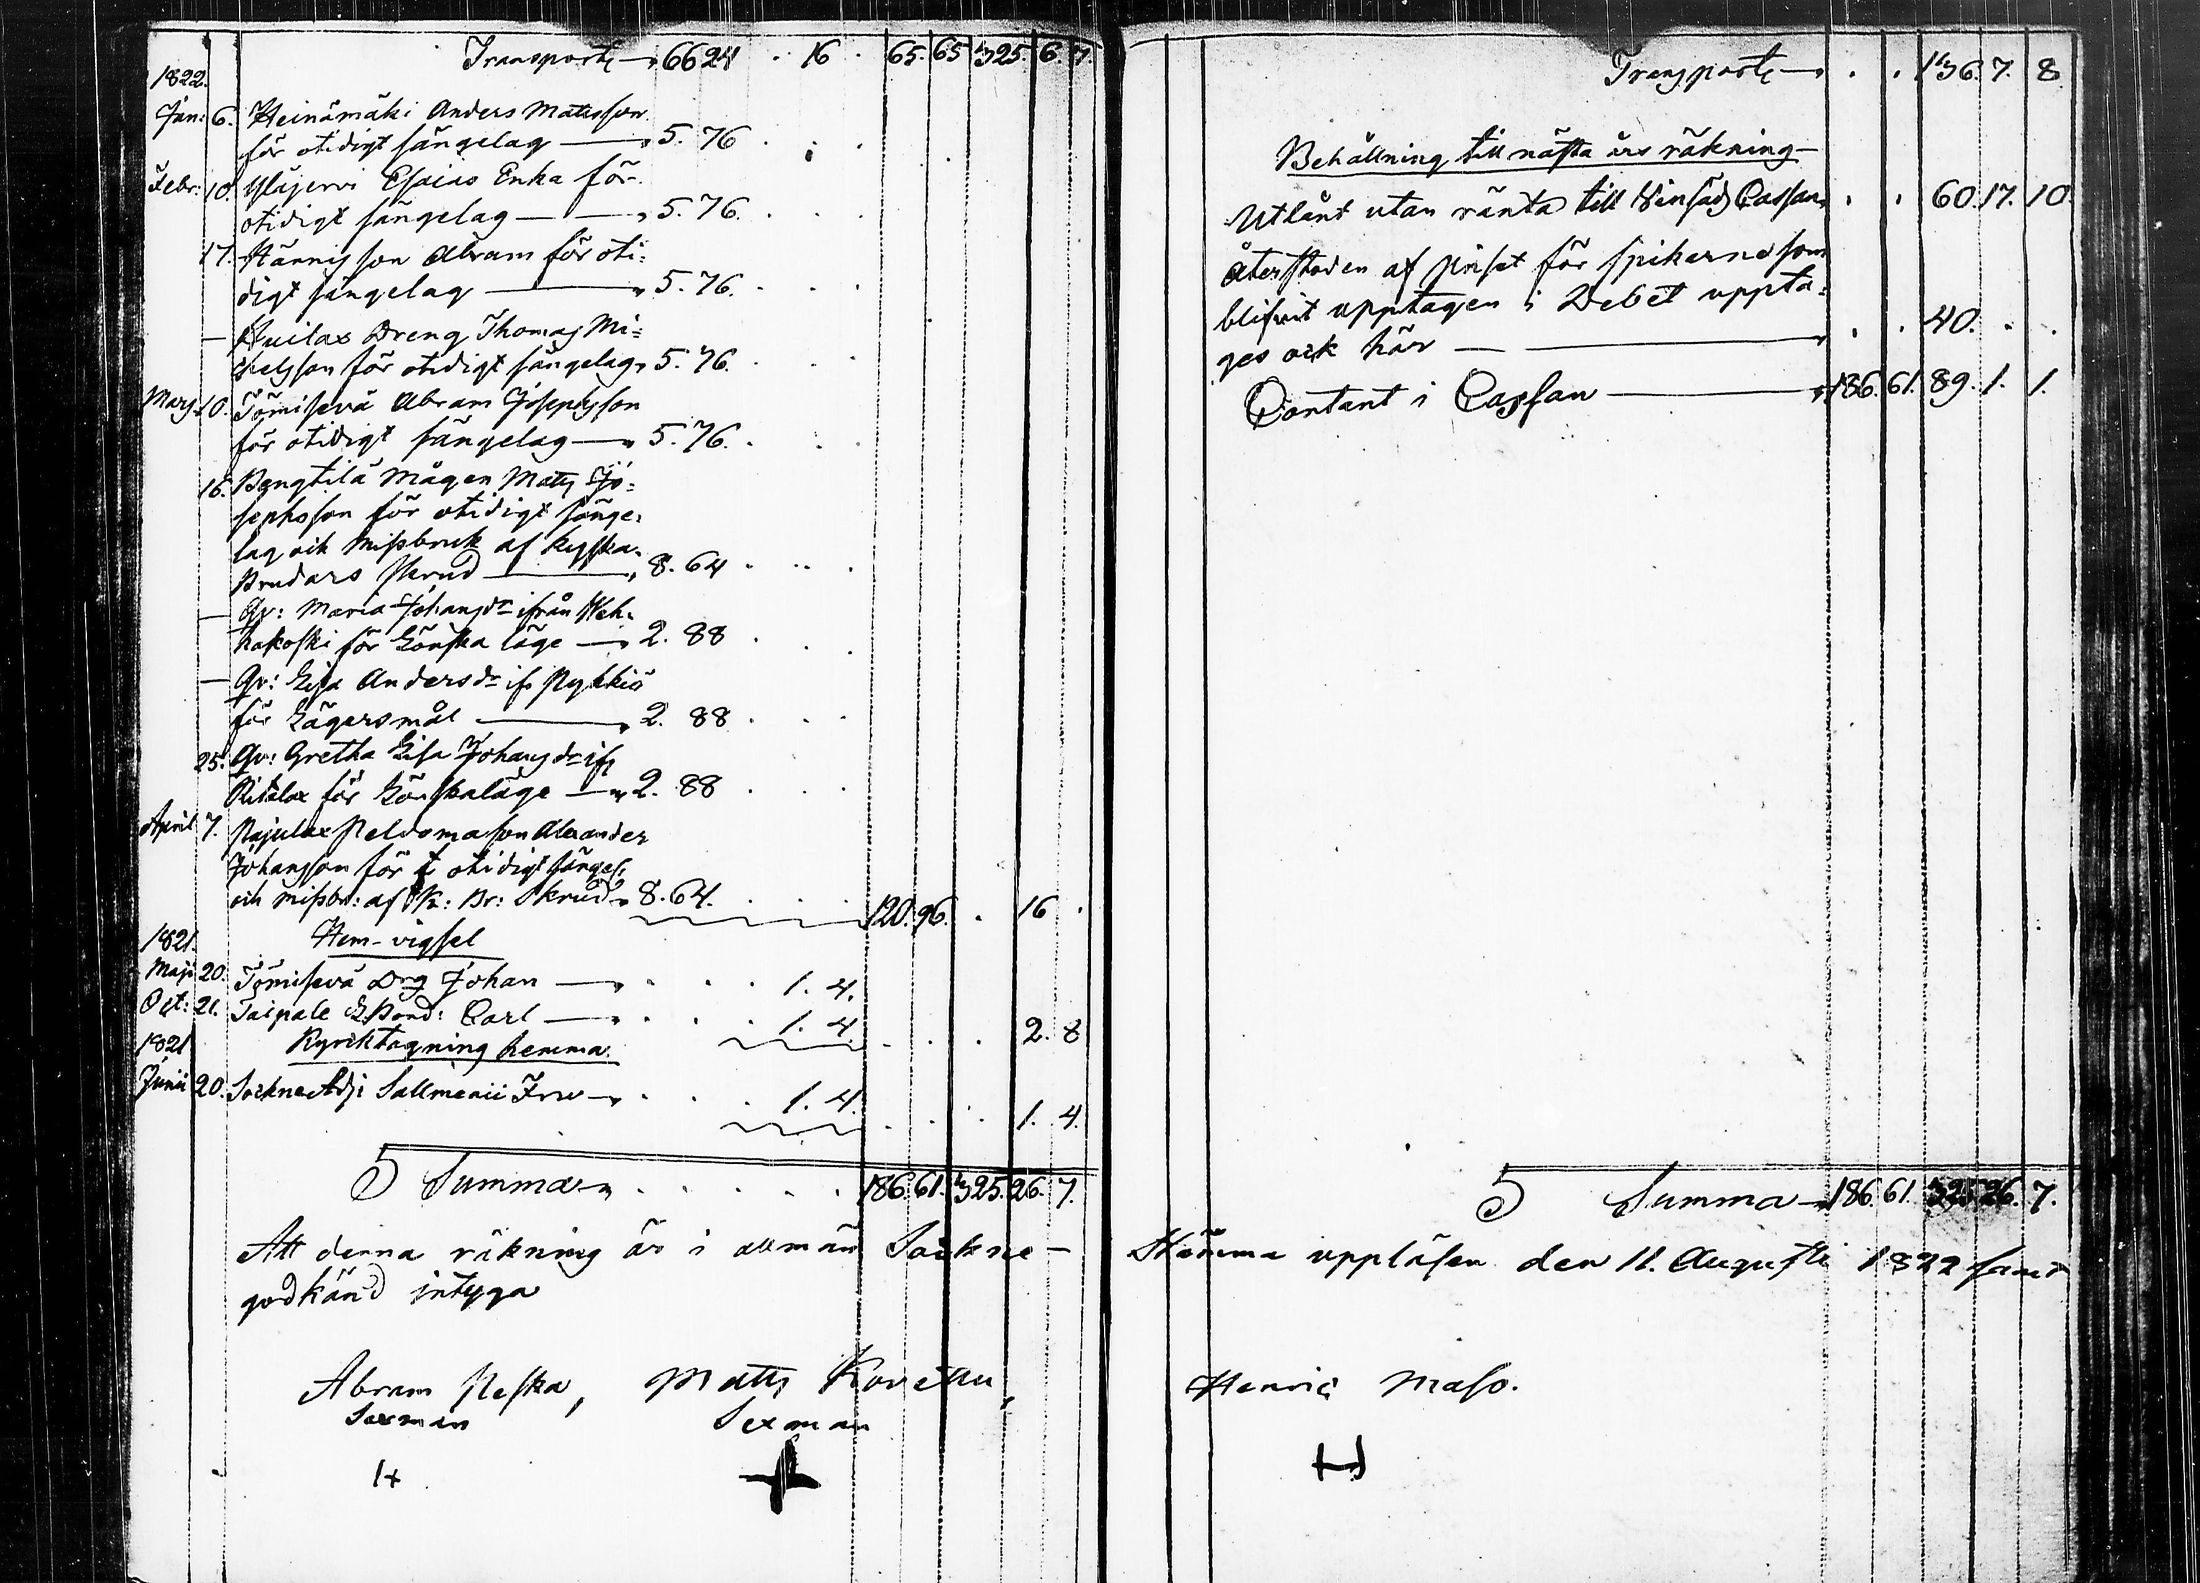 Transport 66 24 . 16 . 65. 65 325. 6. 7.
1822.
Jan: 6. Heinämäki Anders Matsson
för otidigt sängelag — 5. 76
Febr: 10. Yläjervi Esaias Enka för
otidigt sängelag — 5. 76.
17. Hännisson Abram för oti-
digt sängelag — 5. 76.
— Huilax Dreng Thomas Mi-
kelsson för otidigt sängelag 5. 76.
Mars 10. Tömisevä Abram Josephsson
för otidigt sängelag — 5. 76.
16. Bengtilä Mågen Matts Jo-
sephsson för otidigt sänge-
lag och missbruk af kyska
Brudars skrud — 8. 64
— Qv: Maria Johansdr ifrån
för Lönska läge — 2. 88
— Qv: Lisa Andersdr ifr Pykkiö
för Lägersmål — 2. 88
25. Qv: Gretha Lisa Johansdr ifr
Ritalax för Lönskaläge — 2. 88
April 7. Pajulax son Alexander
Johansson för otidigt sängel:
och missbr: af K: Br: Skrud 8. 64. 120. 96. . 16 .
1821. Hem-vigsel
Maji 20. Tömisevä Drg Johan — 1. 4.
Oct: 21. Taipale Carl — 1. 4. 2. 8
1821 Kyrktagning hemma.
Junii 20. Sockne Adj: Sallmenii Fru — 1. 4. 1. 4.
S Summa 186. 61. 325. 26. 7.
Att denna räkning är i allmän Sockne-
godkänd intyga
Abram Neska, Matts
Sexman Sexman
Transport . . 136. 7. 8
Behållning till nästa års räkning
Utlånt utan ränta till Cassan . . 60. 17. 10.
Återstoden af priset för spikarne som
blifvit upptagen i Debet uppta-
ges ock här — . . 40. . .
Contant i Cassan — 186. 61. 89. 1. 1.
S Summa 186. 61. 325 26. 7.
Stämma uppläsen den 11. Augusti 1822 samt
Henric Maso.